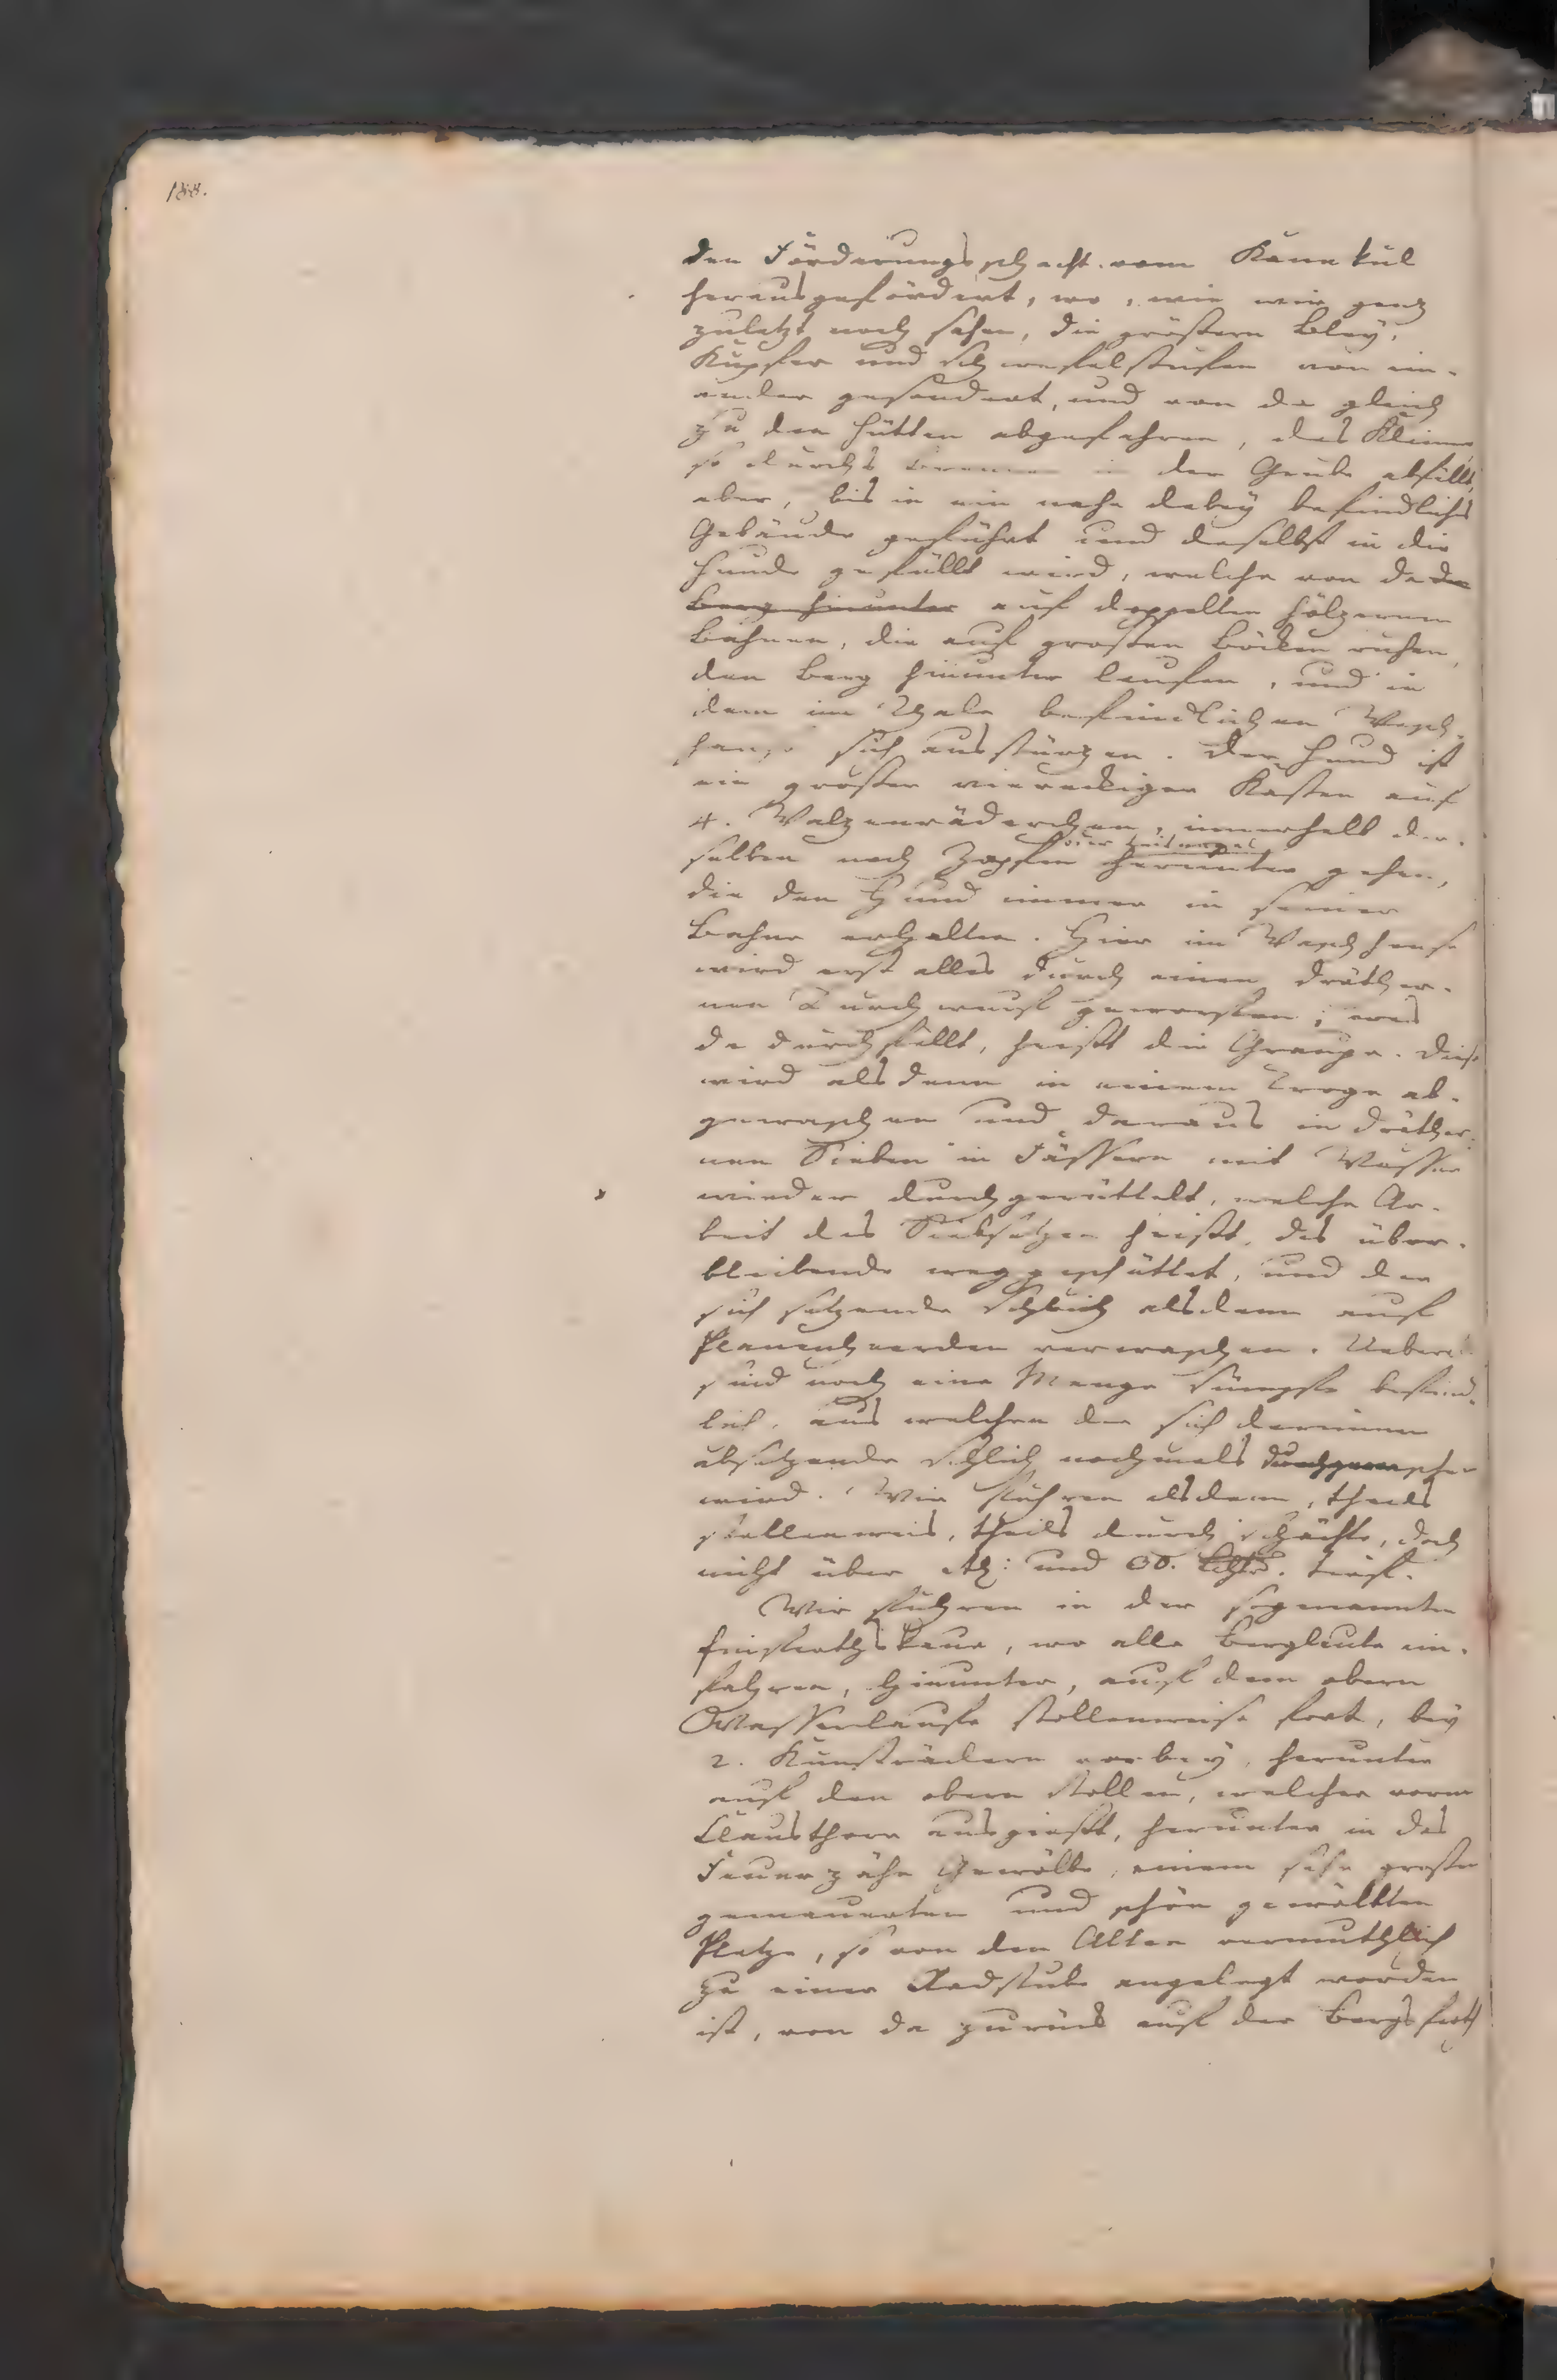 188.
den Förderungsschacht vom Kanekul
herausgefördert, wo, wie wir ganz
zuletzt noch sahen, die grössern Bley,
Kupfer und Schwefelstufen von ein-
ander gesondert, und von da gleich
zu den Hütten abgefahren, das Kleine
so durchs in der Grube abfällt,
aber, bis in ein nahe dabey befindliches
Gebäude geführt und daselbst in die
Hunde gefüllt wird, welche von da den
Berg hinunter auf doppelten hölzernen
Bahnen, die auf grossen Böcken ruhen,
den Berg hinunter laufen, und in
dem im Thale befindlichen Wasch-
hause sich ausstürzen. Der Hund ist
ein grosser viereckiger Kasten auf
4. Walzenräderchen, innerhalb der-
oder Leitnagel
selben noch Zapfen herunter gehen,
die den Hund immer in seiner
Bahne erhalten. Hier im Waschhause
wird erst alles durch einen dräther-
nen Durchwurf geworfen; was
da durchfällt, heisst die Graupe. Diese
wird alsdenn in einem Troge ab-
gewaschen und daraus in dräther-
nen Sieben in Fässern mit Wasser
wieder durchgerüttelt, welche Ar-
beit das Siebsetzen heisst, das über-
bleibende weggeschüttet, und der
sich setzende Schlich alsdenn auf
Planenheerden verwaschen. Ueberall
sind noch eine Menge Sümpfe befind-
lich, aus welchen der sich darinnen
absetzende Schlich nochmals durchgewaschen
wird. Wir fuhren alsdenn, theils
stollenweis, theils durch Schächte, doch
nicht über etl: und 60. Lchtr. tief.
Wir fuhren in der sogenannten
Einfarthskaue, wo alle Bergleute ein-
fahren, hinunter, auf dem obern
Wasserlaufe stollenweise fort, bey
2. Kunsträdern vorbey, herunter
auf den obern Stollen, welcher vorm
Clausthore ausgiesst, herunter in das
Feuerzähe Gewölbe, einem sehr grossen
gemauerten und schön gewölbten
Platze, so von den Alten vermuthlich
zu einer Radstube angelegt worden
ist, von da zurück auf der Bergsfarth